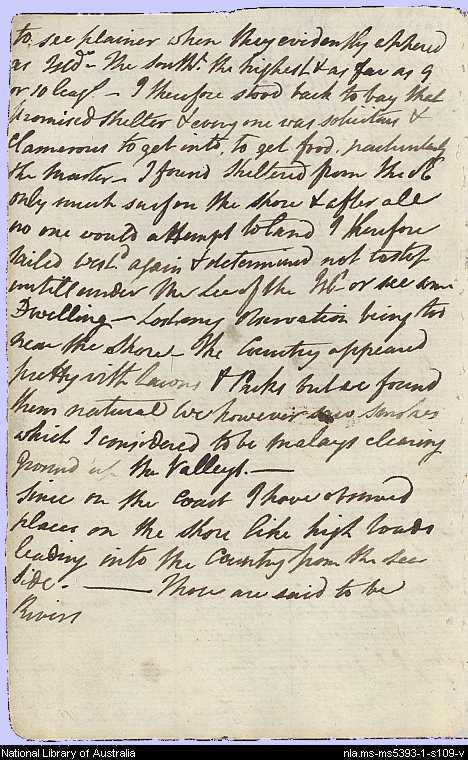 to see plainer when they evidently appeared
as Isld. The South. the highest & as far as 9
or 10 leags - I therefore stood back to bay that
promised shelter & every one was solicitous &
Clamerous to get into, to get food, particularly
the Master - I found sheltered from the
only much surf on the shore & after all
no one would attempt to land I therefore
sailed West again & determined not to stop
untill under the Lee of the Isld or see some
Dwelling - Lost my observation being too
near the Shore - The Country appeared
pretty with Lawns & Parks but we found
them natural we however saw smokes
which I considered to be malays clearing
ground up the Valleys. —
Since on the Coast I have observed
places on the shore like high loads
leading into the Country from the sea
side. —— These are said to be
Rivers
National Library of Australia
nla.ms-ms5393-1-s109-v